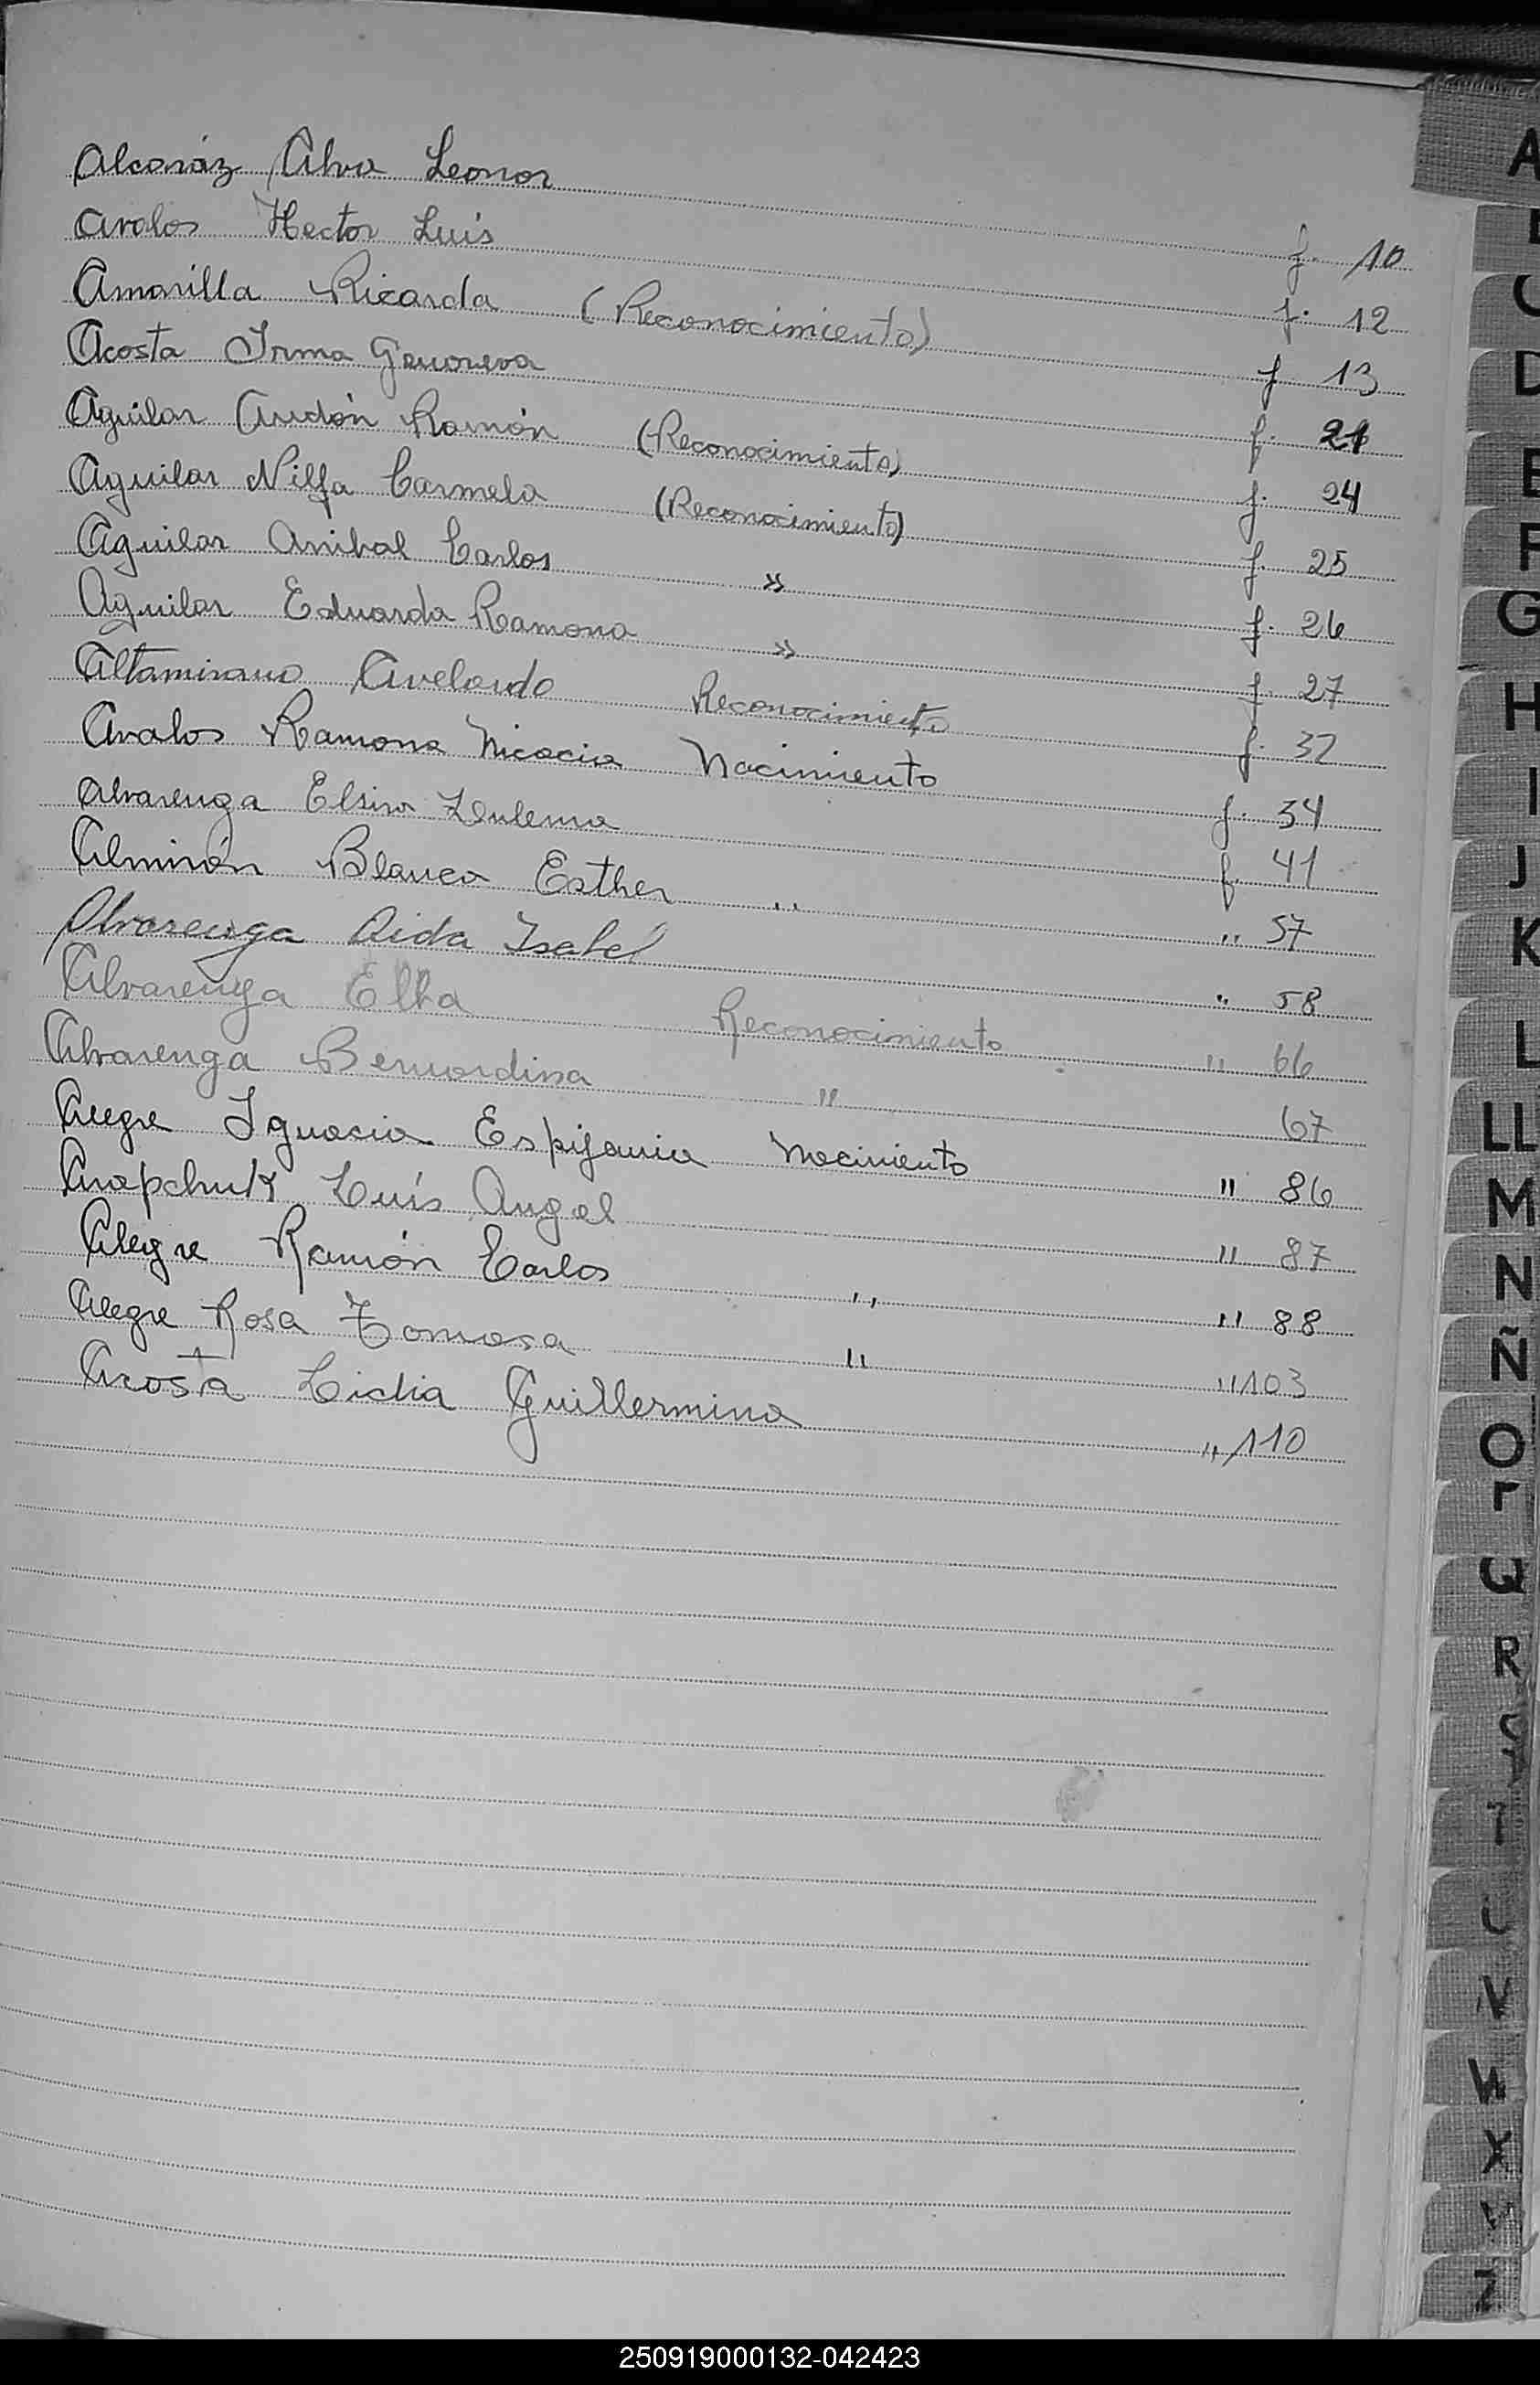 Alcaráz Alva Leonor f. 10
Avalos Hector Luis f. 12
Amarilla Ricarda (Reconocimiento) f 13
Acosta Irma Genoveva f. 21
Aguilar Audón Ramón (Reconocimiento) f. 24
Aguilar Nilfa Carmela (Reconocimiento) f. 25
Aguilar Anibal Carlos » f. 26
Aguilar Eduarda Ramona » f. 27
Altamirano Avelardo Reconocimiento f. 32
Avalos Ramona Nicacia Nacimiento f. 34
Alvarenga Elsira Zulema f. 41
Almirón Blanca Esther " " 57
Alvarenga Aida Isabel " 58
Alvarenga Elba Reconocimiento " 66
Alvarenga Bernardina " 67
Alegre Ignacia Espifania Nacimiento " 86
Anapchuk Luís Angel " 87
Alegre Ramón Carlos " " 88
Alegre Rosa Tomasa " " 103
Acosta Lidia Guillermina " 110
A
D
E
F
G
H
I
J
K
L
LL
M
N
Ñ
O
Q
R
V
W
X
Z
250919000132-042423